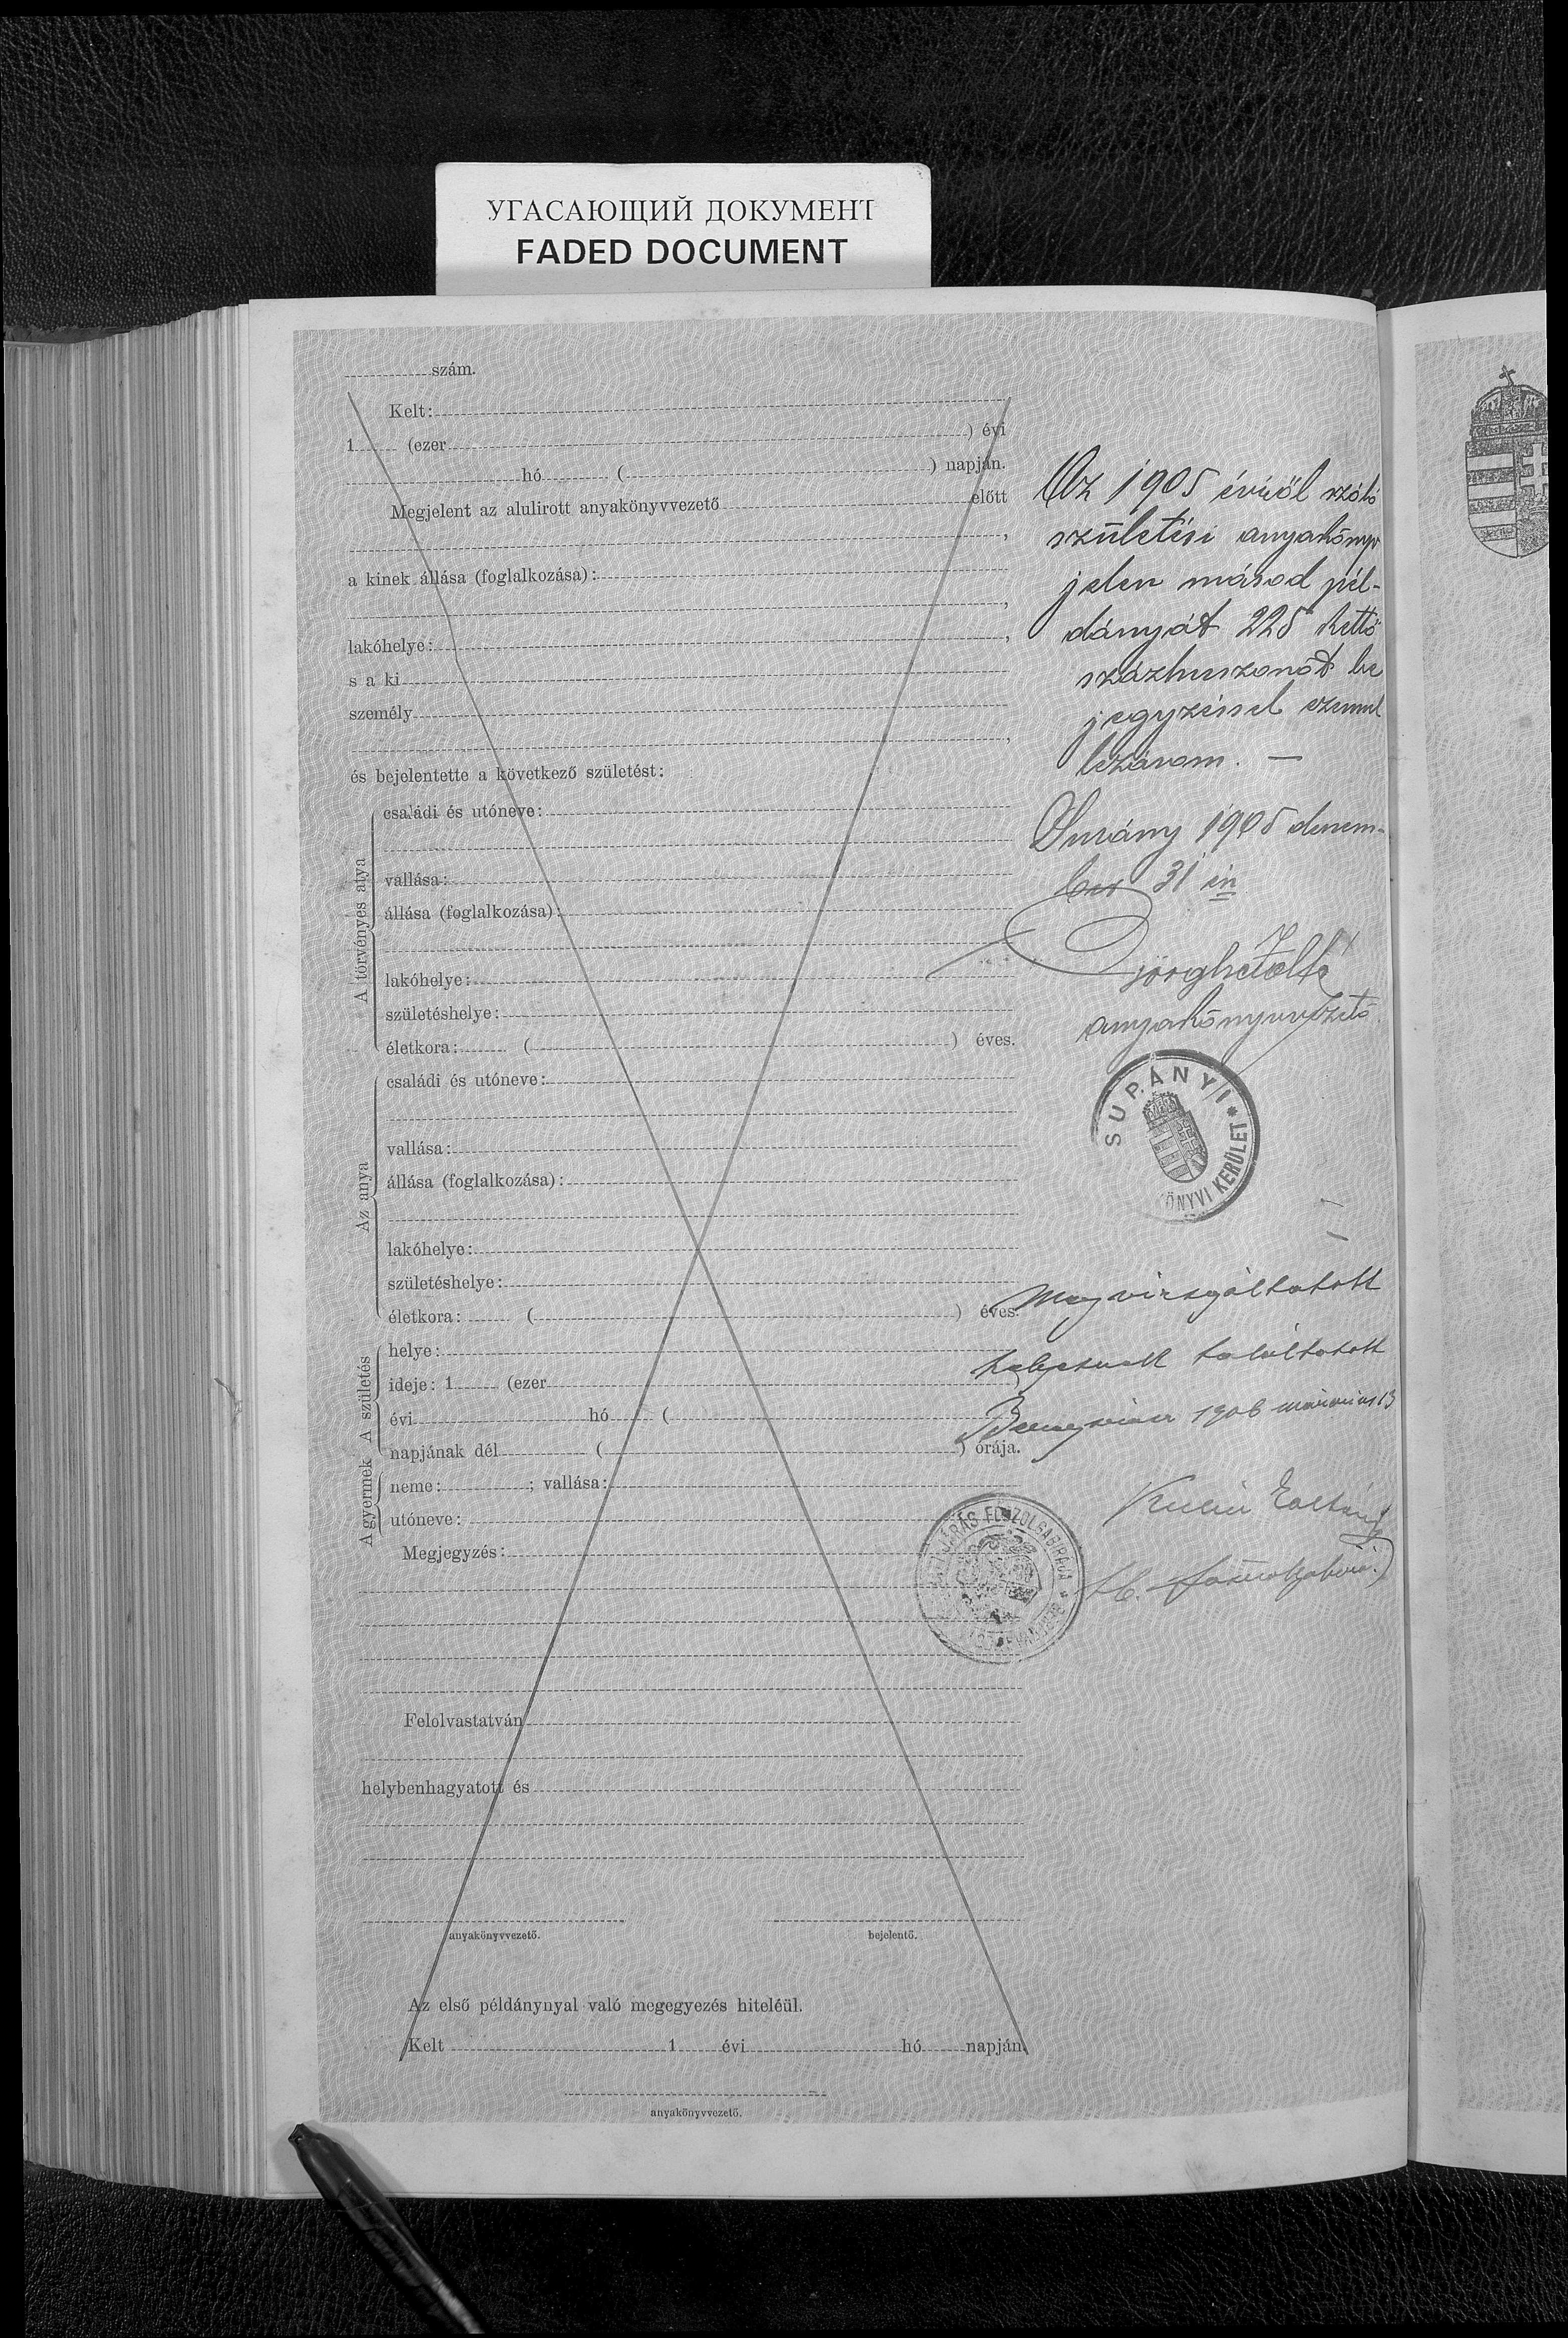 УГАСАЮЩИЙ ДОКУМЕНТ
FADED DOCUMENT
szám.
Kelt:
1 (ezer ) évi
hó ( ) napján.
Megjelent az alulirott anyakönyvvezető előtt
,
a kinek állása (foglalkozása):
,
lakóhelye: ,
s a ki
személy
,
és bejelentette a következő születést:
A törvényes atya
családi és utóneve:
vallása:
állása (foglalkozása):
lakóhelye:
születéshelye:
életkora: ( ) éves.
Az anya
családi és utóneve:
vallása:
állása (foglalkozása):
lakóhelye:
születéshelye:
életkora: ( ) éves.
A születés
helye:
ideje: 1 (ezer
évi hó (
napjának dél ( ) órája.
A gyermek
neme: ; vallása:
utóneve:
Megjegyzés:
Felolvastatván
helybenhagyatott és
anyakönyvvezető. bejelentő.
Az első példánynyal való megegyezés hiteléül.
Kelt 1 évi hó napján
anyakönyvvezető.
Az 1905 évről szóló
születési anyakönyv
jelen másod pél-
dányát 225 kettő
százhuszonöt be
jegyzéssel ezennel
lezárom. —
1905 decem-
ber 31 én
anyakönyvvezető
SUPÁNYI * KÖNYVI KERÜLET
Megvizsgáltatott
helyesnek találtatott
1906 március 13
Zoltán
JÁRÁS FŐSZOLGABIRÁJA